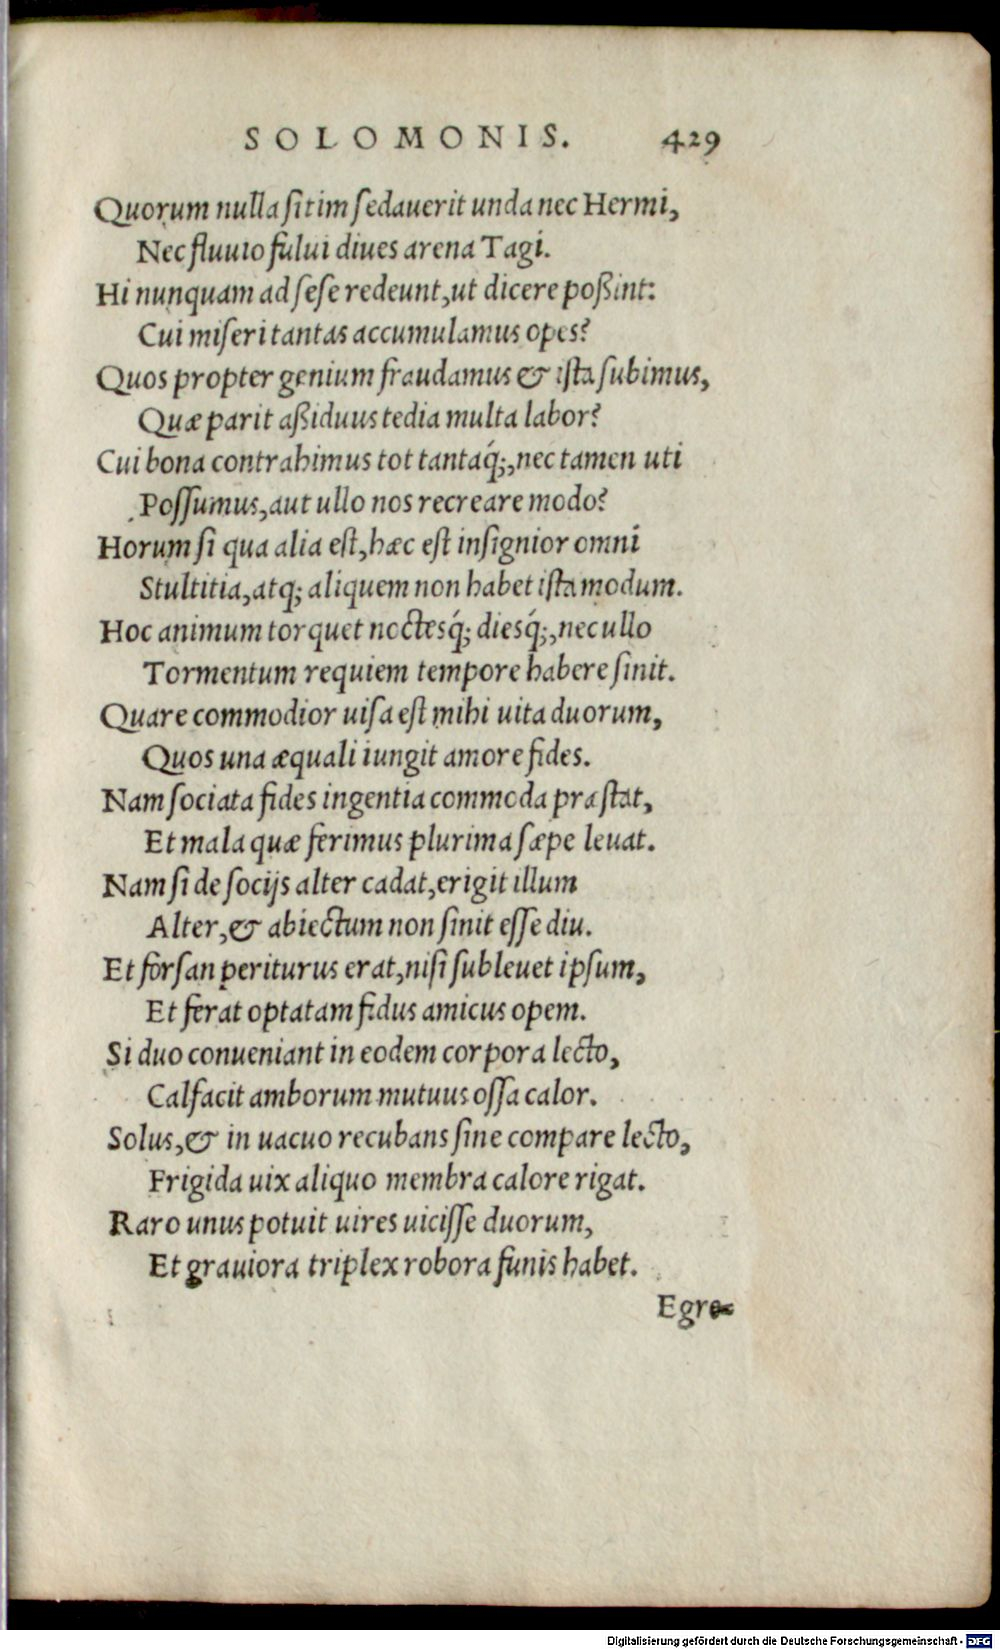 SOLOMONIS. 429
Quorum nulla ſitim ſedauerit unda nec Hermi,
Nec fluuio fului diues arena Tagi.
Hi nunquam ad ſeſe redeunt, ut dicere poßint:
Cui miſeri tantas accumulamus opes?
Quos propter genium fraudamus & iſta ſubimus,
Quæ parit aßiduus tedia multa labor?
Cui bona contrahimus tot tantaq́;, nec tamen uti
Poſſumus, aut ullo nos recreare modo?
Horum ſi qua alia eſt, hæc eſt inſignior omni
Stultitia, atq; aliquem non habet iſta modum.
Hoc animum torquet noctesq́; diesq́;, nec ullo
Tormentum requiem tempore habere ſinit.
Quare commodior uiſa eſt mihi uita duorum,
Quos una æquali iungit amore fides.
Nam ſociata fides ingentia commoda præſtat,
Et mala quæ ferimus plurima ſæpe leuat.
Nam ſi de ſocijs alter cadat, erigit illum
Alter, & abiectum non ſinit eſſe diu.
Et forſan periturus erat, niſi ſubleuet ipſum,
Et ferat optatam fidus amicus opem.
Si duo conueniant in eodem corpora lecto,
Calfacit amborum mutuus oſſa calor.
Solus, & in uacuo recubans ſine compare lecto,
Frigida uix aliquo membra calore rigat.
Raro unus potuit uires uiciſſe duorum,
Et grauiora triplex robora funis habet.
Egre-
Digitalisierung gefördert durch die Deutsche Forschungsgemeinschaft - DFG